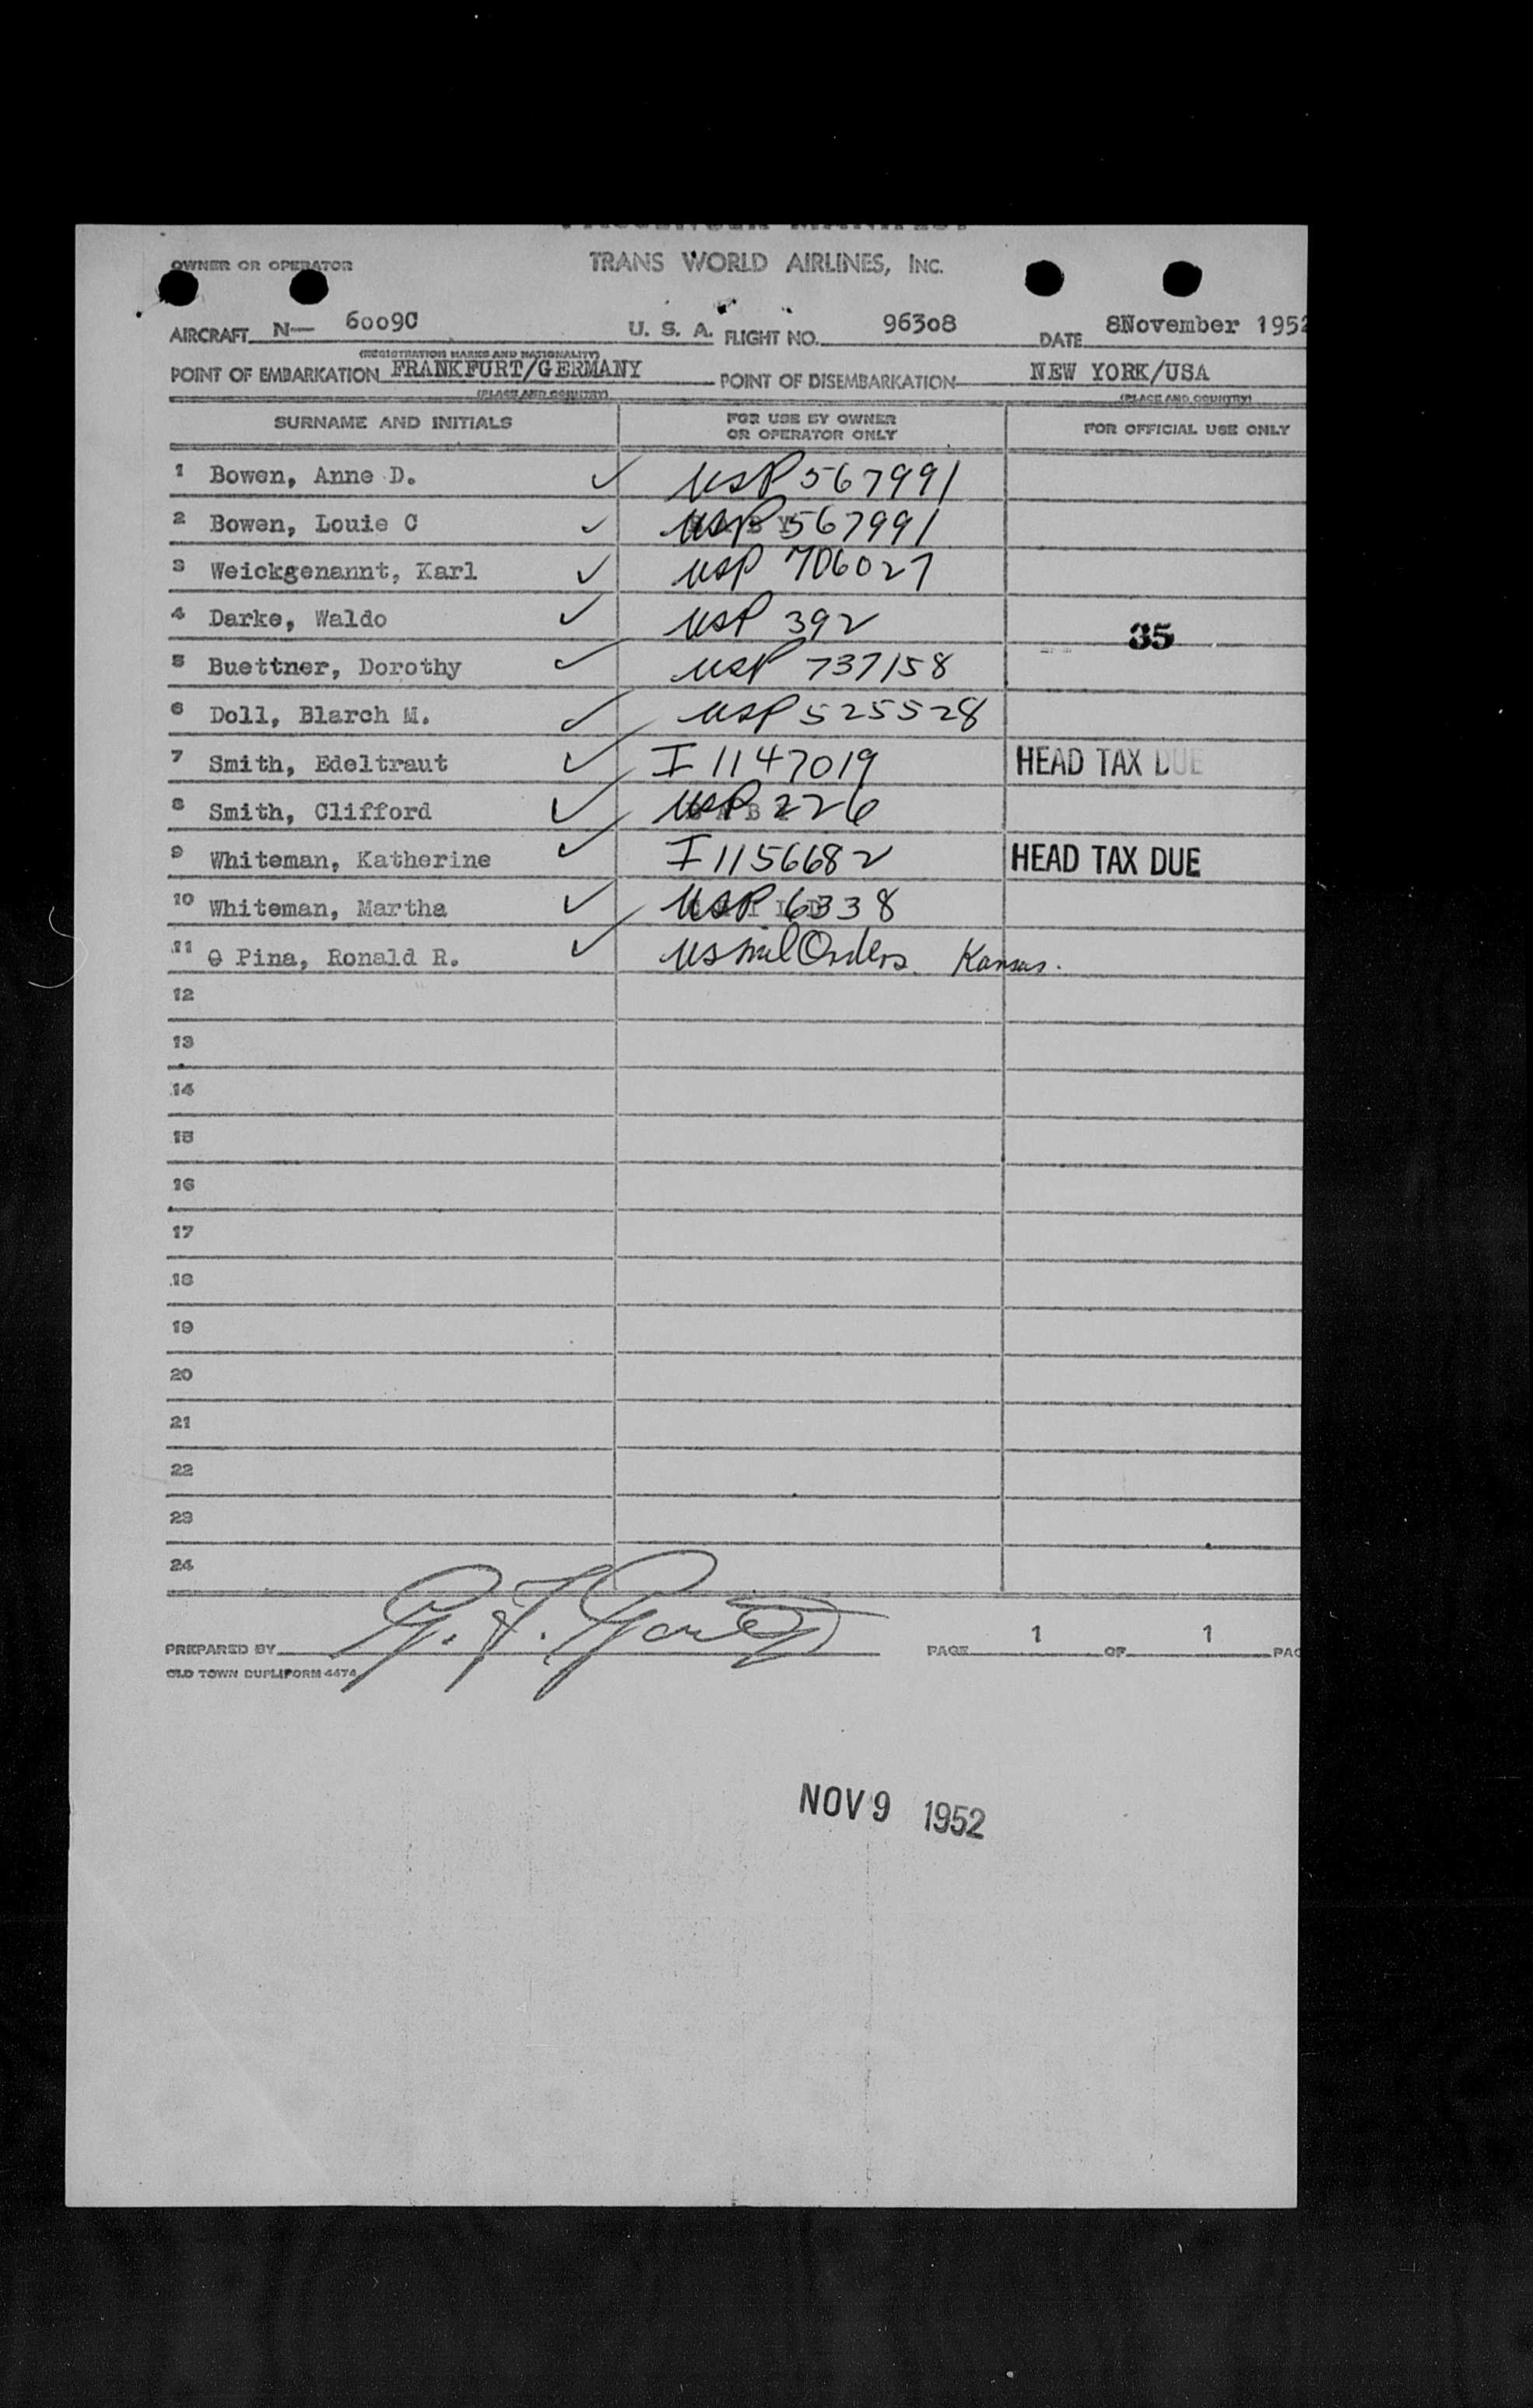 PASSENGER MANIFEST
OWNER OR OPERATOR TRANS WORLD AIRLINES, INC.
AIRCRAFT N— 6009C U. S. A. FLIGHT NO. 96308 DATE 8November 1952
(REGISTRATION MARKS AND NATIONALITY)
POINT OF EMBARKATION FRANKFURT/GERMANY POINT OF DISEMBARKATION NEW YORK/USA
(PLACE AND COUNTRY) (PLACE AND COUNTRY)
SURNAME AND INITIALS FOR USE BY OWNER OR OPERATOR ONLY FOR OFFICIAL USE ONLY
1 Bowen, Anne D. ✓ USP 567991
2 Bowen, Louie C ✓ BABY USP 567991
3 Weickgenannt, Karl ✓ USP 706027
4 Darke, Waldo ✓ USP 392 35
5 Buettner, Dorothy ✓ USP 737158
6 Doll, Blarch M. ✓ USP 525528
7 Smith, Edeltraut ✓ I 1147019 HEAD TAX DUE
8 Smith, Clifford ✓ BABY USP 226
9 Whiteman, Katherine ✓ I 1156682 HEAD TAX DUE
10 Whiteman, Martha ✓ USP 6338
11 O Pina, Ronald R. ✓ US mil Orders. Kansas.
12
13
14
15
16
17
18
19
20
21
22
23
24
PREPARED BY G. J. PAGE 1 OF 1 PAG
OLD TOWN DUPLIFORM 4474
NOV 9 1952